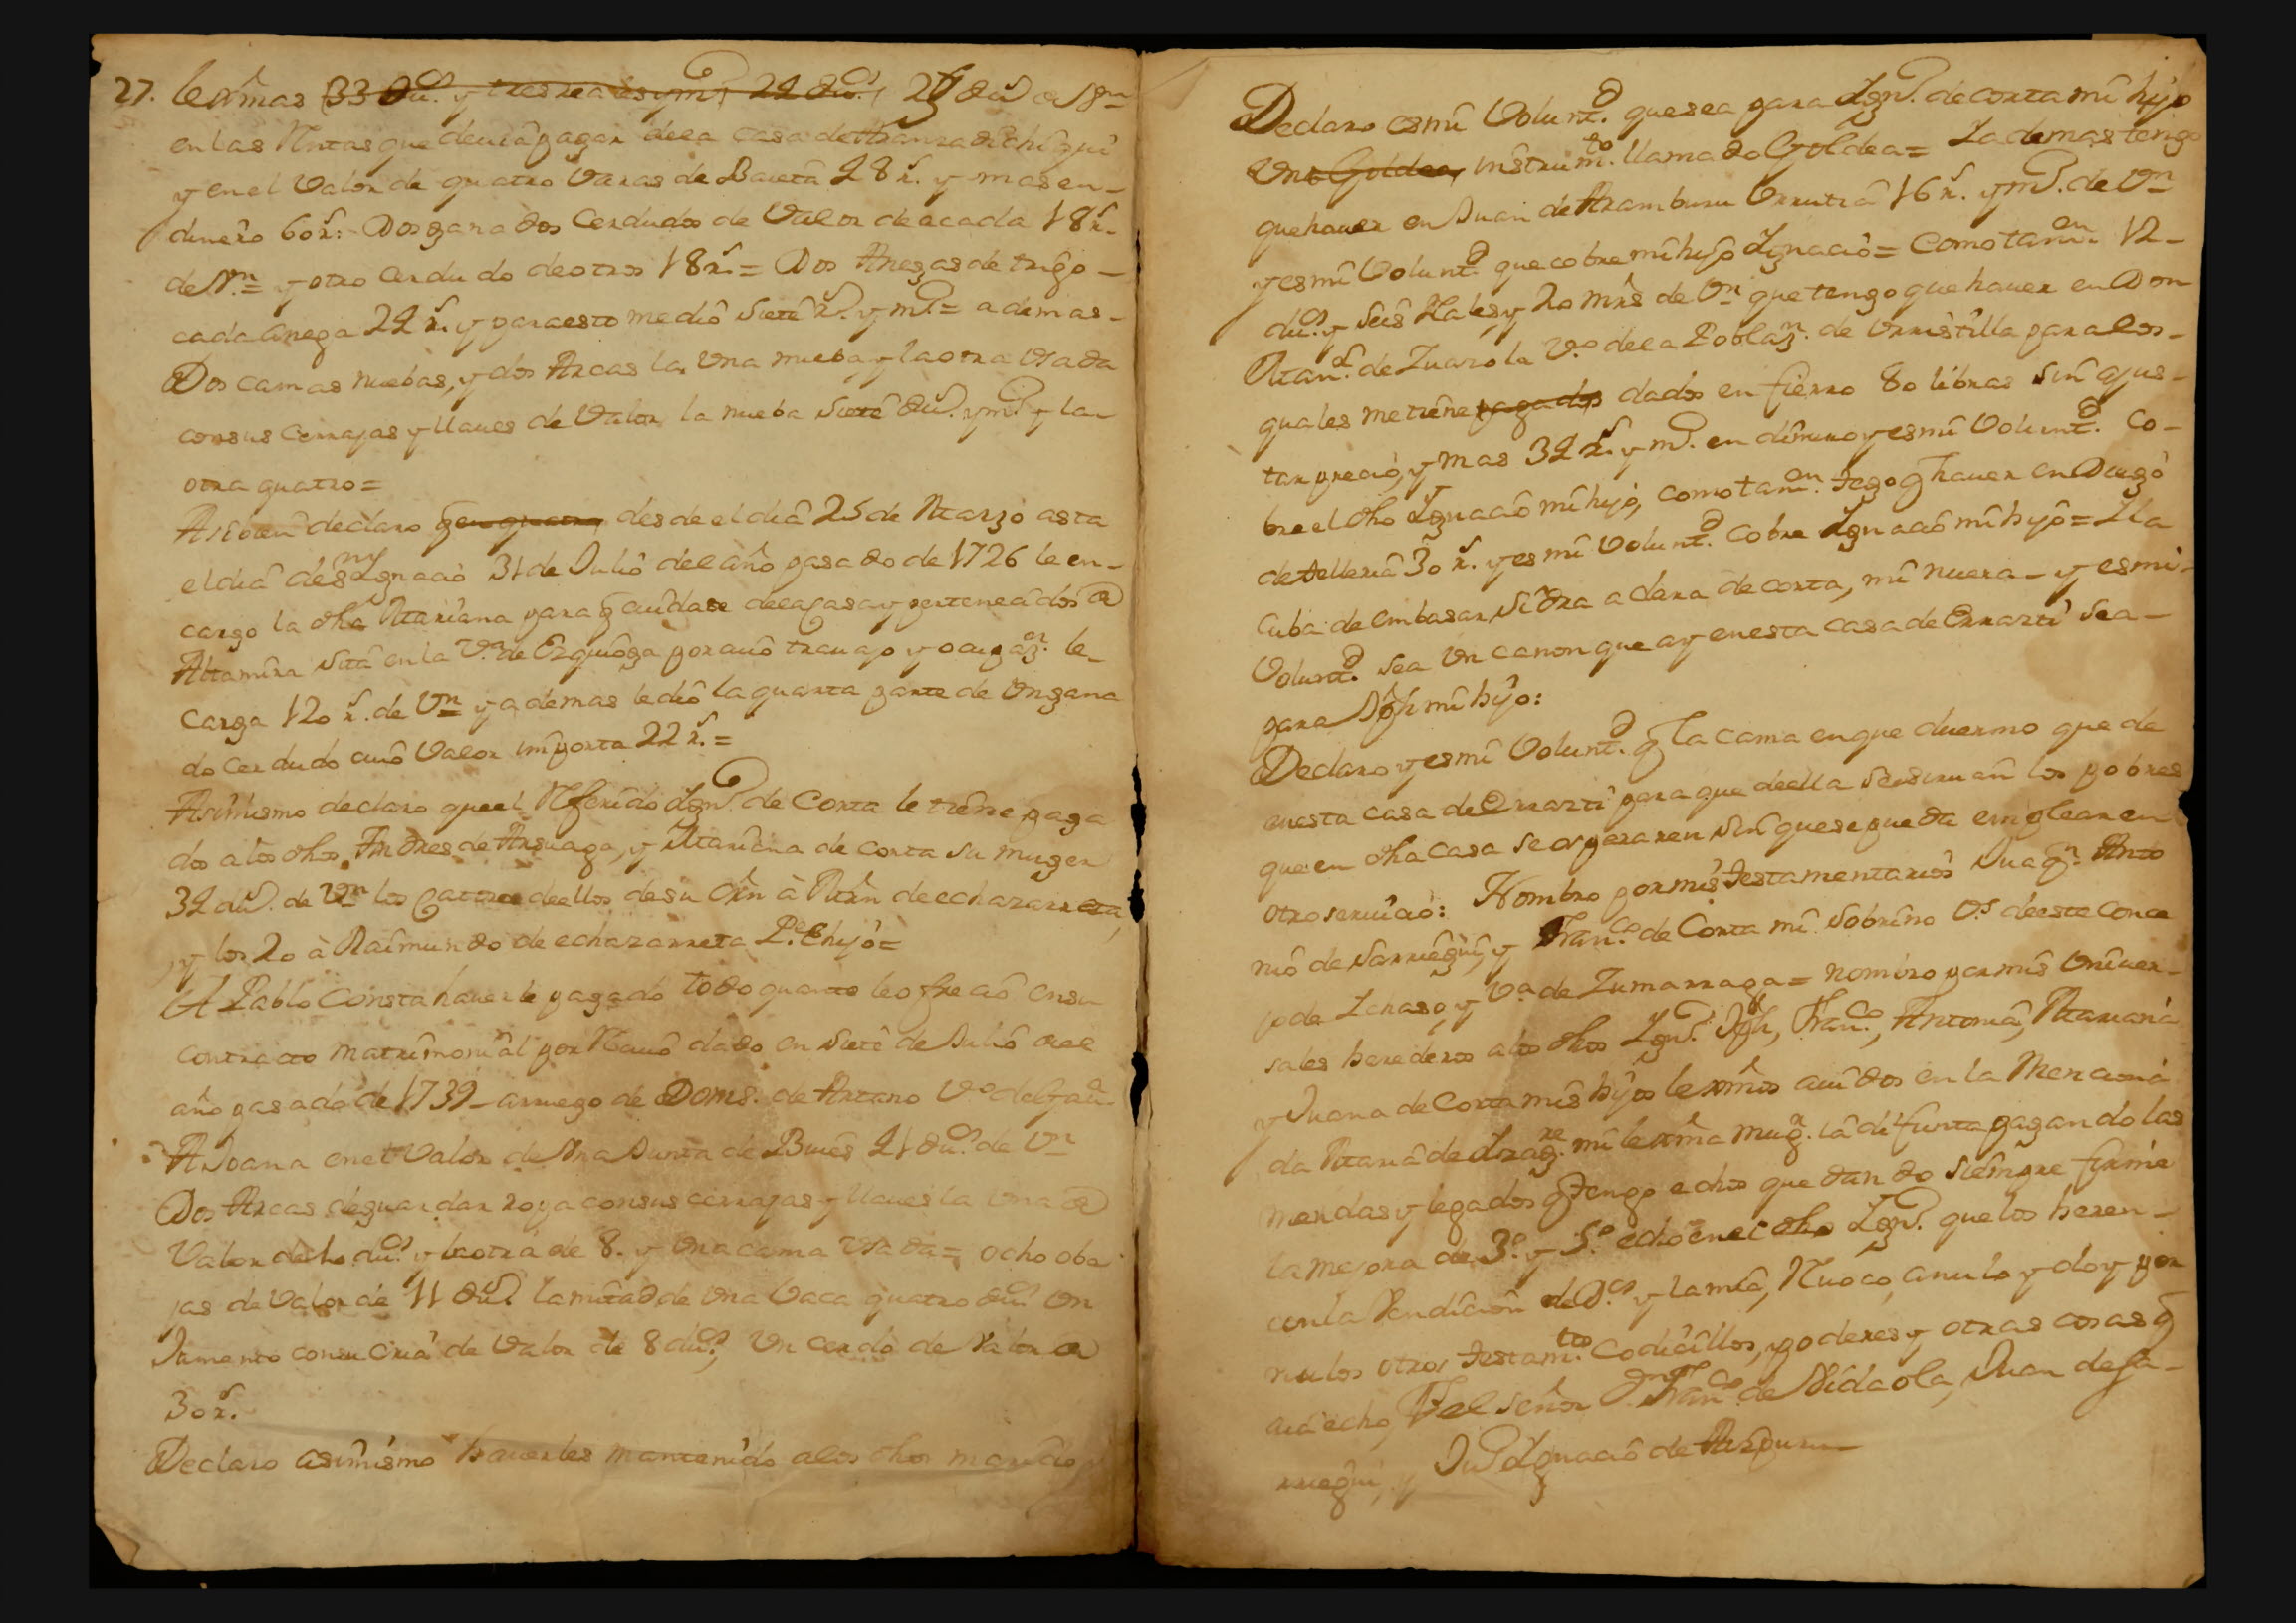 27. lexmas 33 du.s y tres reales y m.o 22 du.s, 25 du.s de Vn
en las Rentas que deuia pagar dela casa de Aranzadichiqui
y en el Valor de quatro Varas de Baieta 28 r.s y mas en-
dinero 60 r.s: Dos ganados Cerdudos de Valor de acada 18 r.s
de Vn.= y otro cerdudo de otros 18 r.s= Dos Anegas de trigo-
cada anega 22 r.s y para esto me dió siete r.s y m.o= ademas-
Dos camas nuebas, y dos Arcas la Una nueba, y la otra Vsada
con sus cerrajas y llaues de Valor la nueba siete du.s y m.o y la
otra quatro=
Asibien declaro q̃ en quatro desde el dia 25 de Marzo asta
el dia de Sn Ygnacio 31 de Julio del año pasado de 1726 le en-
cargo la dha Mariana para q̃ cuidase dela casa y pertenecidos de
Altamira sita en la V.a de Ezquioga por cuio trauajo y ocupaz.on le
carga 120 r.s de Vn y ademas le dió la quarta parte de Vn gana
do cerdudo cuio Valor importa 22 r.s=
Asimismo declaro que el Referido Ygn.o de Corta le tiene paga
dos a los dhos Andres de Arsuaga, y Mariana de Corta su muger
32 du.s de Vn los catorce de ellos de su Orn à Mrn de echazarreta,
y los 20 à Raimundo de echazarreta P.e e hijo=
A Pablo Consta hauerle pagado todo quanto le ofrecio en su
contracto matrimonial por Reciuo dado en siete de Julio del
año pasado de 1739 - a ruego de Doms. de Artano V.o de Gau.
A Joana en el Valor de Vna Junta de Bueis 21 du.s de Vn
Dos Arcas de guardar ropa con sus cerrajas y llaues la Una de
Valor de du.s y la otra de 8. y Una cama Vsada= ocho obe
jas de Valor de 11 du.s la mitad de Una Vaca quatro du.s Un
Jumento con su Cria de Valor de 8 du.s, Un cerdo de Valor de
30 r.s
Declaro asimismo hauerles mantenido a los dhos marido y
Declaro es mi Volunt.d que sea para Ygn.o de corta mi hijo
Una Goldea, instrum.to llamado Goldea= Y ademas tengo
que hauer en Juan de Aramburu Urrutia 16 r.s y m.o de Vn
y es mi Volunt.d que cobre mi hijo Ygnacio= Como tam.en 12-
du.s y seis Rales y 20 mrs de Vn que tengo que hauer en Don
Man.l de Zuazola V.o dela Poblaz.n de Urrestilla para los-
quales me tiene pagados dados en fierro 80 libras sin ajus-
tar precio, y mas 32 r.s y m.o en dinero y es mi Volunt.d co-
bre el dho Ygnacio mi hijo, como tam.en tego q̃ hauer en Diego
de telleria 30 r.s y es mi Volunt.d cobre Ygnacio mi hijo= Y la
cuba de embasar sidra a clara de corta, mi nuera - y es mi
Volunt.d sea Un canon que ay en esta casa de Errazti sea-
para Jph mi hijo:
Declaro y es mi Volunt.d q̃ la cama en que duermo que de
en esta casa de Errazti para que de ella se siruan los pobres
que en dha casa se ospedaren sin que se pueda emplear en
otro seruicio: Nombro por mis testamentarios Juaqn. Anto
nio de Sarriegui, y Fran.co de Corta mi sobrino V.s de este Conce
jo de Ychaso, y V.a de Zumarraga= nombro por mis Uniuer-
sales herederos a los dhos Ygn.o Jph, Fran.co, Antonia, Mariana
y Juana de Corta mis hijos lexmos auidos en la Menciona
da Maria de mi lexma mug.r la difunta pagando las
mandas y legados q̃ tengo echos quedando siempre firme
la mejora de 3.o y 5.o echo en el dho Ygn.o que los heren-
con la Vendicion de D.s y la mia, Reuoco, anulo y doy por
nulos otros testam.tos Codicillos, poderes y otras cosas q̃
aia echo, Tel señor D.n Fran.co de Vidaola, Juan de Sa-
rriegui, y Ju.o Ygnacio de Aizpuru